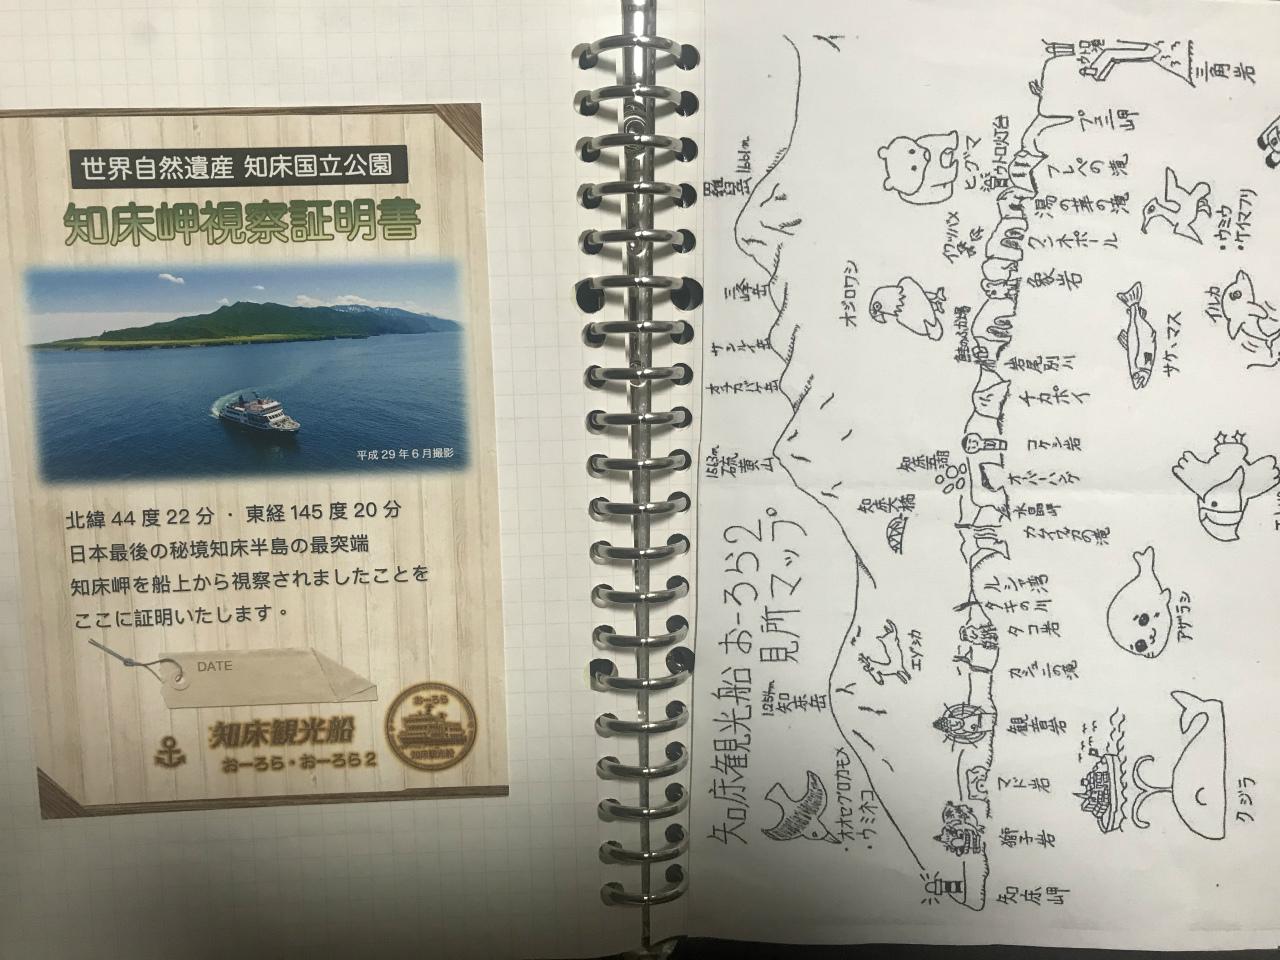 世界自然遺産 知床国立公園
知床岬視察証明書
平成29年6月撮影
北緯44度22分・東経145度20分
日本最後の秘境知床半島の最突端
知床岬を船上から視察されましたことを
ここに証明いたします。
DATE
知床観光船
おーろら・おーろら2
おーろら
知床観光船
知床観光船 おーろら2
見所マップ
羅臼岳 1661m
三峰岳
サシルイ岳
オチカバケ岳
1563m
硫黄山
1254m
知床岳
・オオセグロカモメ
・ウミネコ
エゾシカ
知床大橋
知床五湖
オジロワシ
ヒグマ
ウトロ灯台
イワツバメ
鮭のふ化場
ウトロ港
三角岩
プユニ岬
フレペの滝
湯の華の滝
クンネポール
象岩
岩尾別川
チカポイ
コケシ岩
オーバーハング
水晶岬
カムイワッカの滝
ルシャ湾
タキの川
タコ岩
カシュニの滝
観音岩
マド岩
獅子岩
知床岬
・ウミウ
・ケイマフリ
サケ、マス
イルカ
アザラシ
クジラ